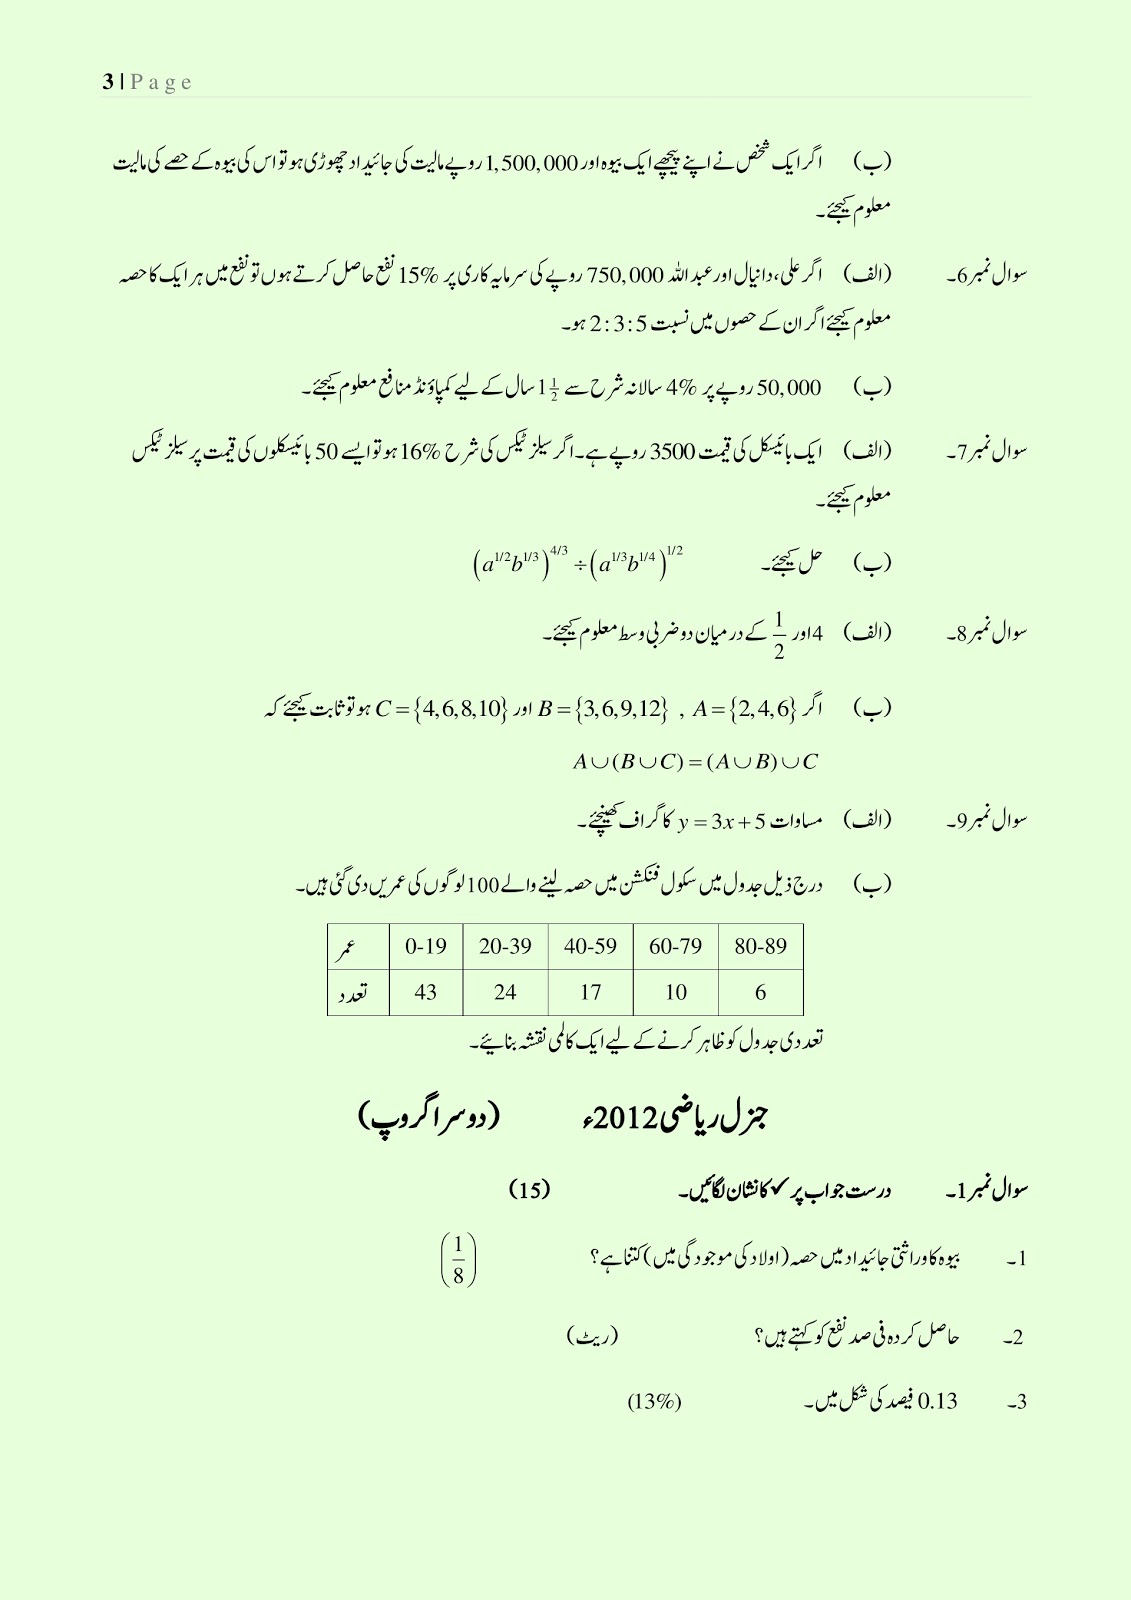 3 | P a g e
(ب) اگر ایک شخص نے اپنے پیچھے ایک بیوہ اور 1,500,000 روپے مالیت کی جائیداد چھوڑی ہو تو اس کی بیوہ کے حصے کی مالیت
معلوم کیجئے۔
سوال نمبر 6۔ (الف) اگر علی، دانیال اور عبد اللہ 750,000 روپے کی سرمایہ کاری پر 15% نفع حاصل کرتے ہوں تو نفع میں ہر ایک کا حصہ
معلوم کیجئے اگر ان کے حصوں میں نسبت 2:3:5 ہو۔
(ب) 50,000 روپے پر 4% سالانہ شرح سے 1 1/2 سال کے لیے کمپاؤنڈ منافع معلوم کیجئے۔
سوال نمبر 7۔ (الف) ایک بائیسکل کی قیمت 3500 روپے ہے۔ اگر سیلز ٹیکس کی شرح 16% ہو تو ایسے 50 بائیسکلوں کی قیمت پر سیلز ٹیکس
معلوم کیجئے۔
(ب) حل کیجئے۔ (a^{1/2}b^{1/3})^{4/3} ÷ (a^{1/3}b^{1/4})^{1/2}
سوال نمبر 8۔ (الف) 4 اور 1/2 کے درمیان دو ضربی وسط معلوم کیجئے۔
(ب) اگر A = {2,4,6} , B = {3,6,9,12} اور C = {4,6,8,10} ہو تو ثابت کیجئے کہ
A∪(B∪C) = (A∪B)∪C
سوال نمبر 9۔ (الف) مساوات y = 3x + 5 کا گراف کھینچئے۔
(ب) درج ذیل جدول میں سکول فنکشن میں حصہ لینے والے 100 لوگوں کی عمریں دی گئی ہیں۔
عمر 0-19 20-39 40-59 60-79 80-89
تعدد 43 24 17 10 6
تعددی جدول کو ظاہر کرنے کے لیے ایک کالمی نقشہ بنایئے۔
جنرل ریاضی 2012ء (دوسرا گروپ)
سوال نمبر 1۔ درست جواب پر ✓ کا نشان لگائیں۔ (15)
1۔ بیوہ کا وراثتی جائیداد میں حصہ (اولاد کی موجودگی میں) کتنا ہے؟ (1/8)
2۔ حاصل کردہ فی صد نفع کو کہتے ہیں؟ (ریٹ)
3۔ 0.13 فیصد کی شکل میں۔ (13%)